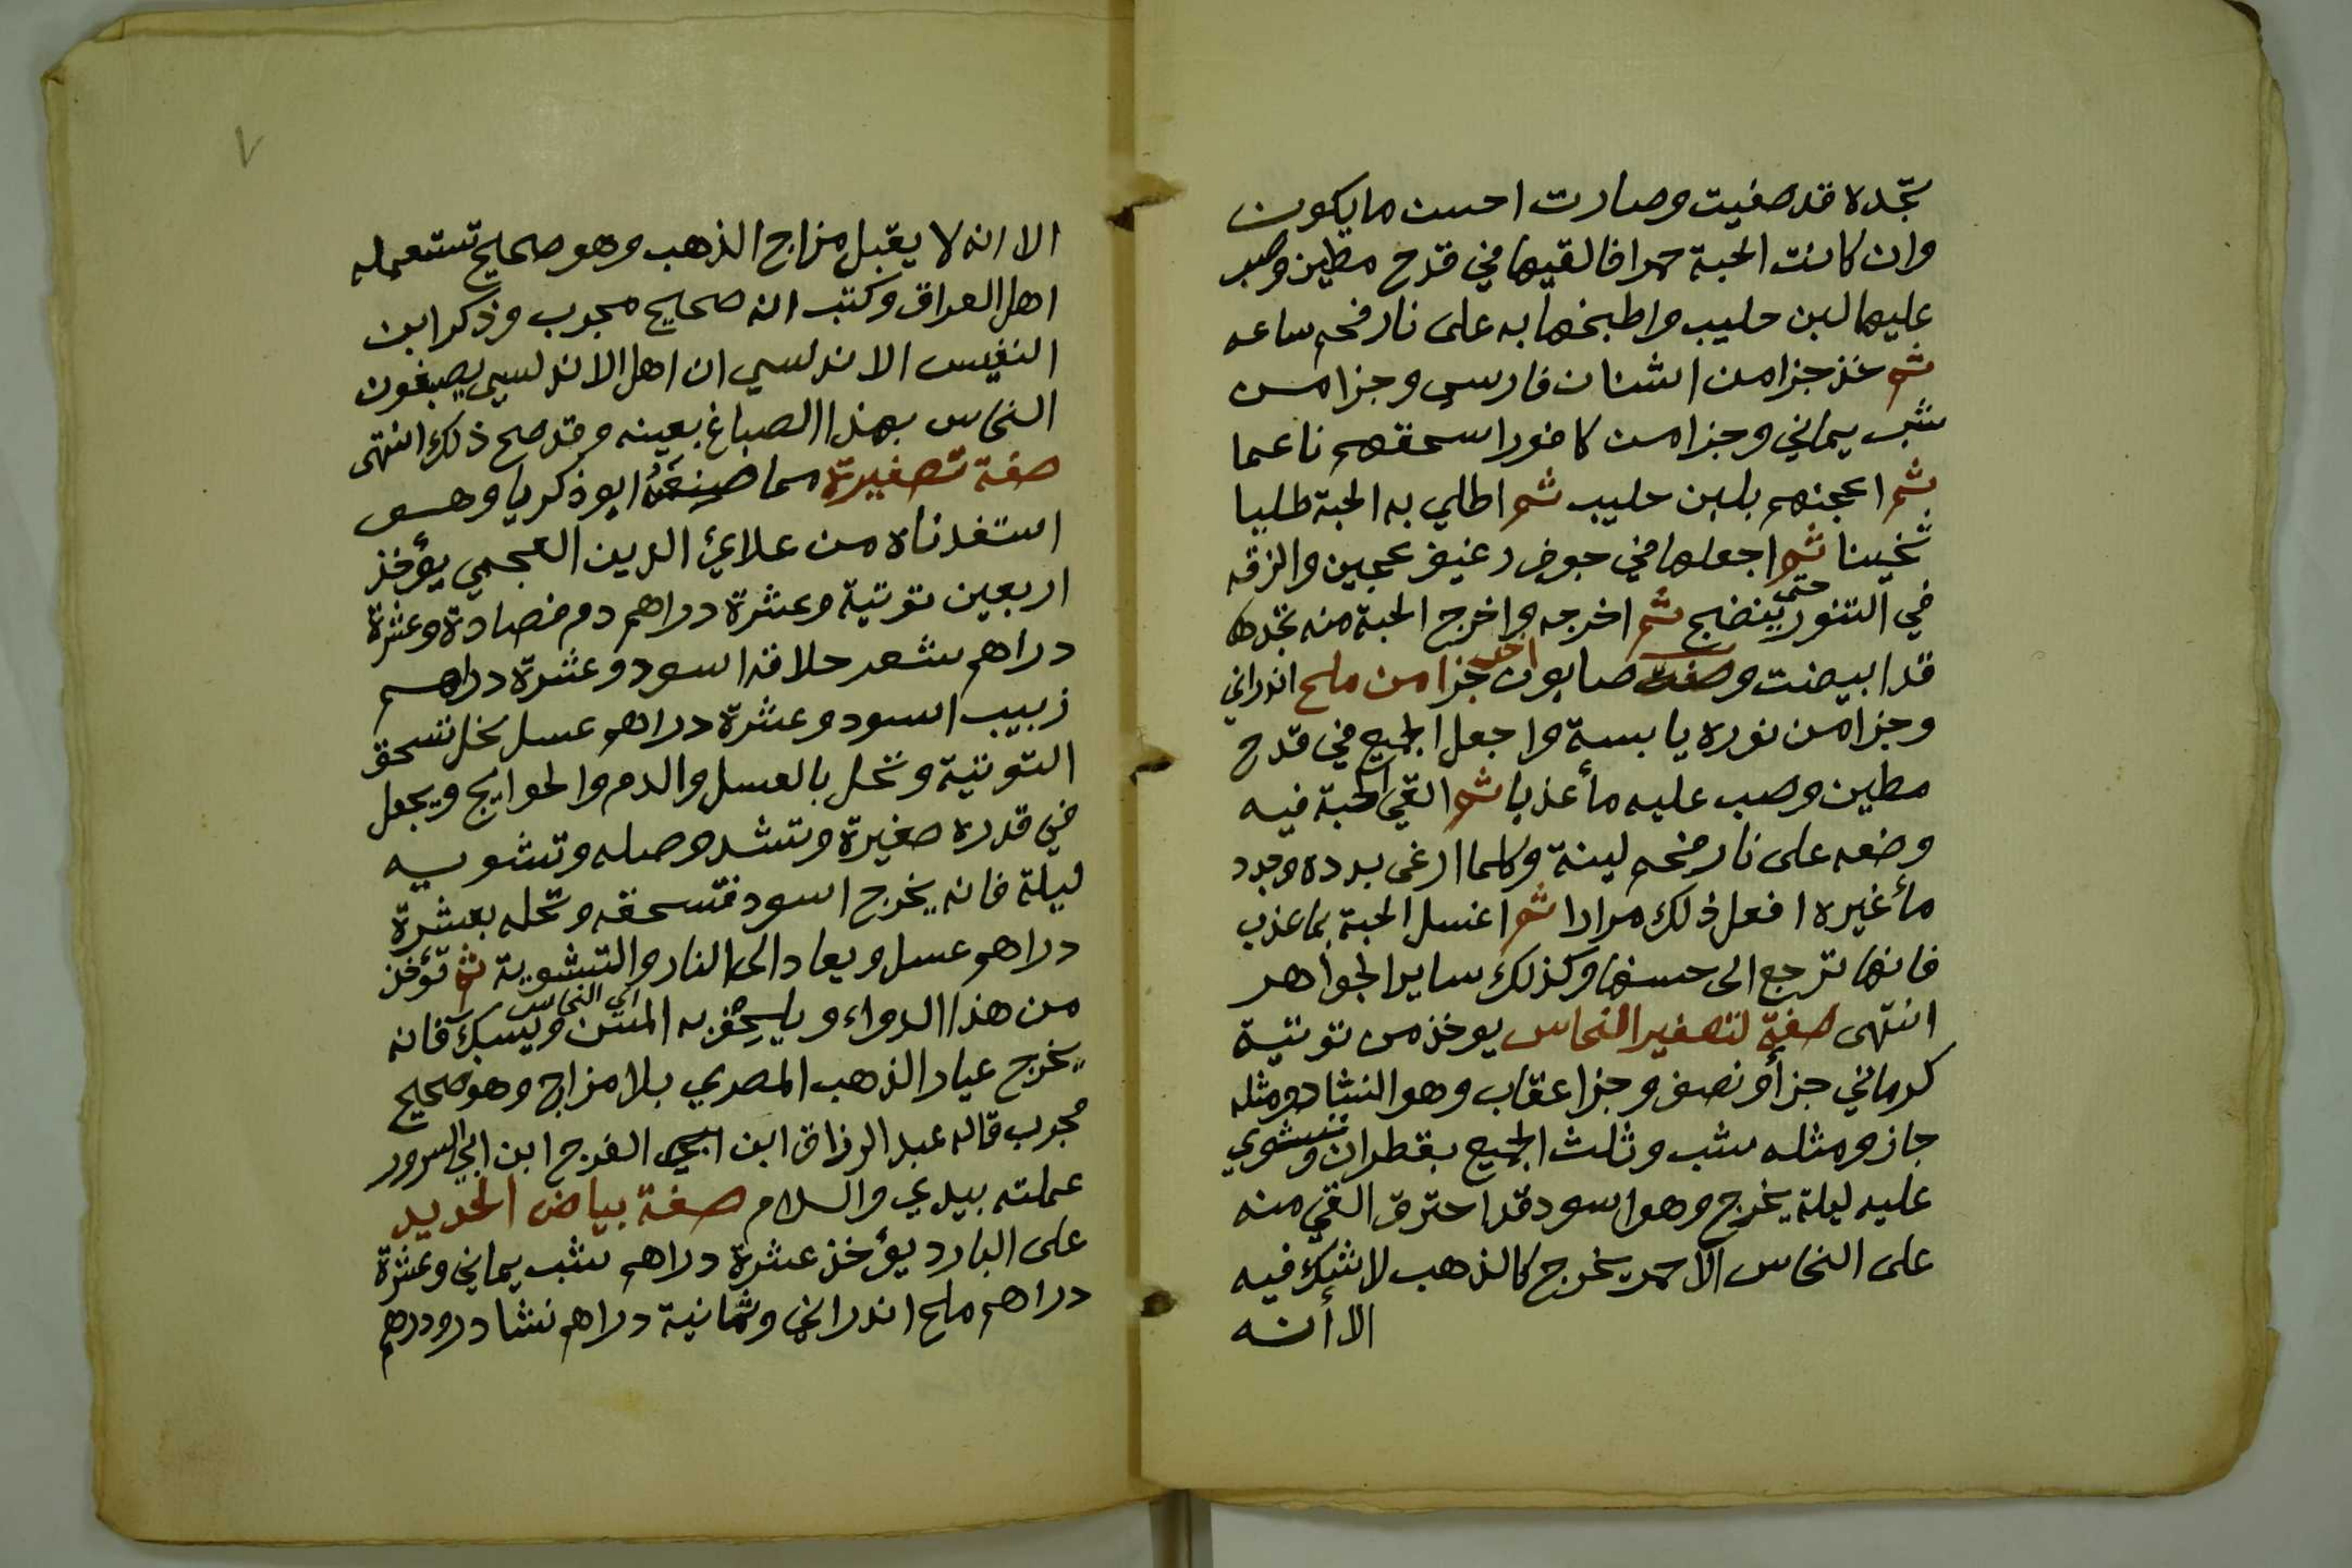 تجده قد صفيت وصارت احسن ما يكون
وان كانت الحبة حمرا فالقيها في قدح مطين وصب
عليها لبن حليب واطبخها به على نار فحم ساعه
ثم خذ جزا من اشنان فارسي وجزا من
شب يماني وجزا من كافور اسحقهم ناعما
ثم اعجنهم بلبن حليب ثم اطلي به الحبة طليا
تخينا ثم اجعلها في جوف رغيف عجين والزقه
في التنور حتى ينضج ثم اخرجه واخرج الحبة منه تجدها
قد ابيضت وصفت صابون اخر جزا من ملح اندراني
وجزا من نوره يابسة واجعل الجميع في قدح
مطين وصب عليه مأ عذبا ثم القي الحبة فيه
وضعه على نار فحم لينة وكلما ارغى بدده وجدد
مأ غيره افعل ذلك مرارا ثم اغسل الحبة بما عذب
فانها ترجع الى حسنها وكذلك ساير الجواهر
انتهى صفة لتصفير النحاس يوخذ من توتية
كرماني جزأ ونصف وجزا عقاب وهو النشادر ومثله
جاز ومثله شب وثلث الجميع بقطران وتشوي
عليه ليلة يخرج وهو اسود قد احترق القي منه
على النحاس الاحمر يخرج كالذهب لا شك فيه
الا أنه
٧
الا انه لا يقبل مزاج الذهب وهو صحيح تستعمله
اهل العراق وكتب انه صحيح مجرب وذكر ابن
النفيس الاندلسي ان اهل الاندلسي يصبغون
النحاس بهذا الصباغ بعينه وقد صح ذلك انتهى
صفة تصفيرة مما صنعه ابو ذكريا وهو
استفدناه من علاي الدين العجمي يؤخذ
اربعين توتية وعشرة دراهم دم فصادة وعشرة
دراهم شعر حلاقه اسود وعشرة دراهم
زبيب اسود وعشرة دراهم عسل نحل تسحق
التوتية وتحل بالعسل والدم والحوايج ويجعل
في قدره صغيرة وتشد وصله وتشويه
ليلة فانه يخرج اسود فتسحقه وتحله بعشرة
دراهم عسل ويعاد الى النار والتشوية ثم تؤخذ
من هذا الدواء ويلحق به المس اي النحاس ويسبك فانه
يخرج عيار الذهب المصري بلا مزاج وهو صحيح
مجرب قاله عبد الرزاق ابن ابي الفرج ابن ابي السرور
عملته بيدي والسلام صفة بياض الحديد
على البارد يؤخذ عشرة دراهم شب يماني وعشرة
دراهم ملح اندراني وثمانية دراهم نشادر ودرهم